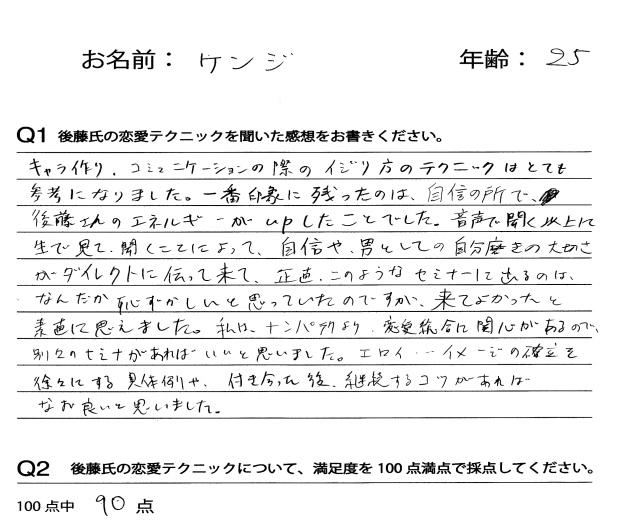 お名前： ケンジ 年齢： 25
Q1 後藤氏の恋愛テクニックを聞いた感想をお書きください。
キャラ作り、コミュニケーションの際のイジり方のテクニックはとても
参考になりました。一番印象に残ったのは、自信の所で、
後藤さんのエネルギーがupしたことでした。音声で聞く以上に
生で見て、聞くことによって、自信や、男としての自分磨きの大切さ
がダイレクトに伝って来て、正直、このようなセミナーに出るのは、
なんだか恥ずかしいと思っていたのですが、来てよかったと
素直に思えました。私は、ナンパ
より、恋愛
に関心があるので、
別々のセミナがあればいいと思いました。エロイ…イメージの確立を
徐々にする具体例や、付き合った後、継続するコツがあれば
なお良いと思いました。
Q2 後藤氏の恋愛テクニックについて、満足度を100点満点で採点してください。
100点中 90点